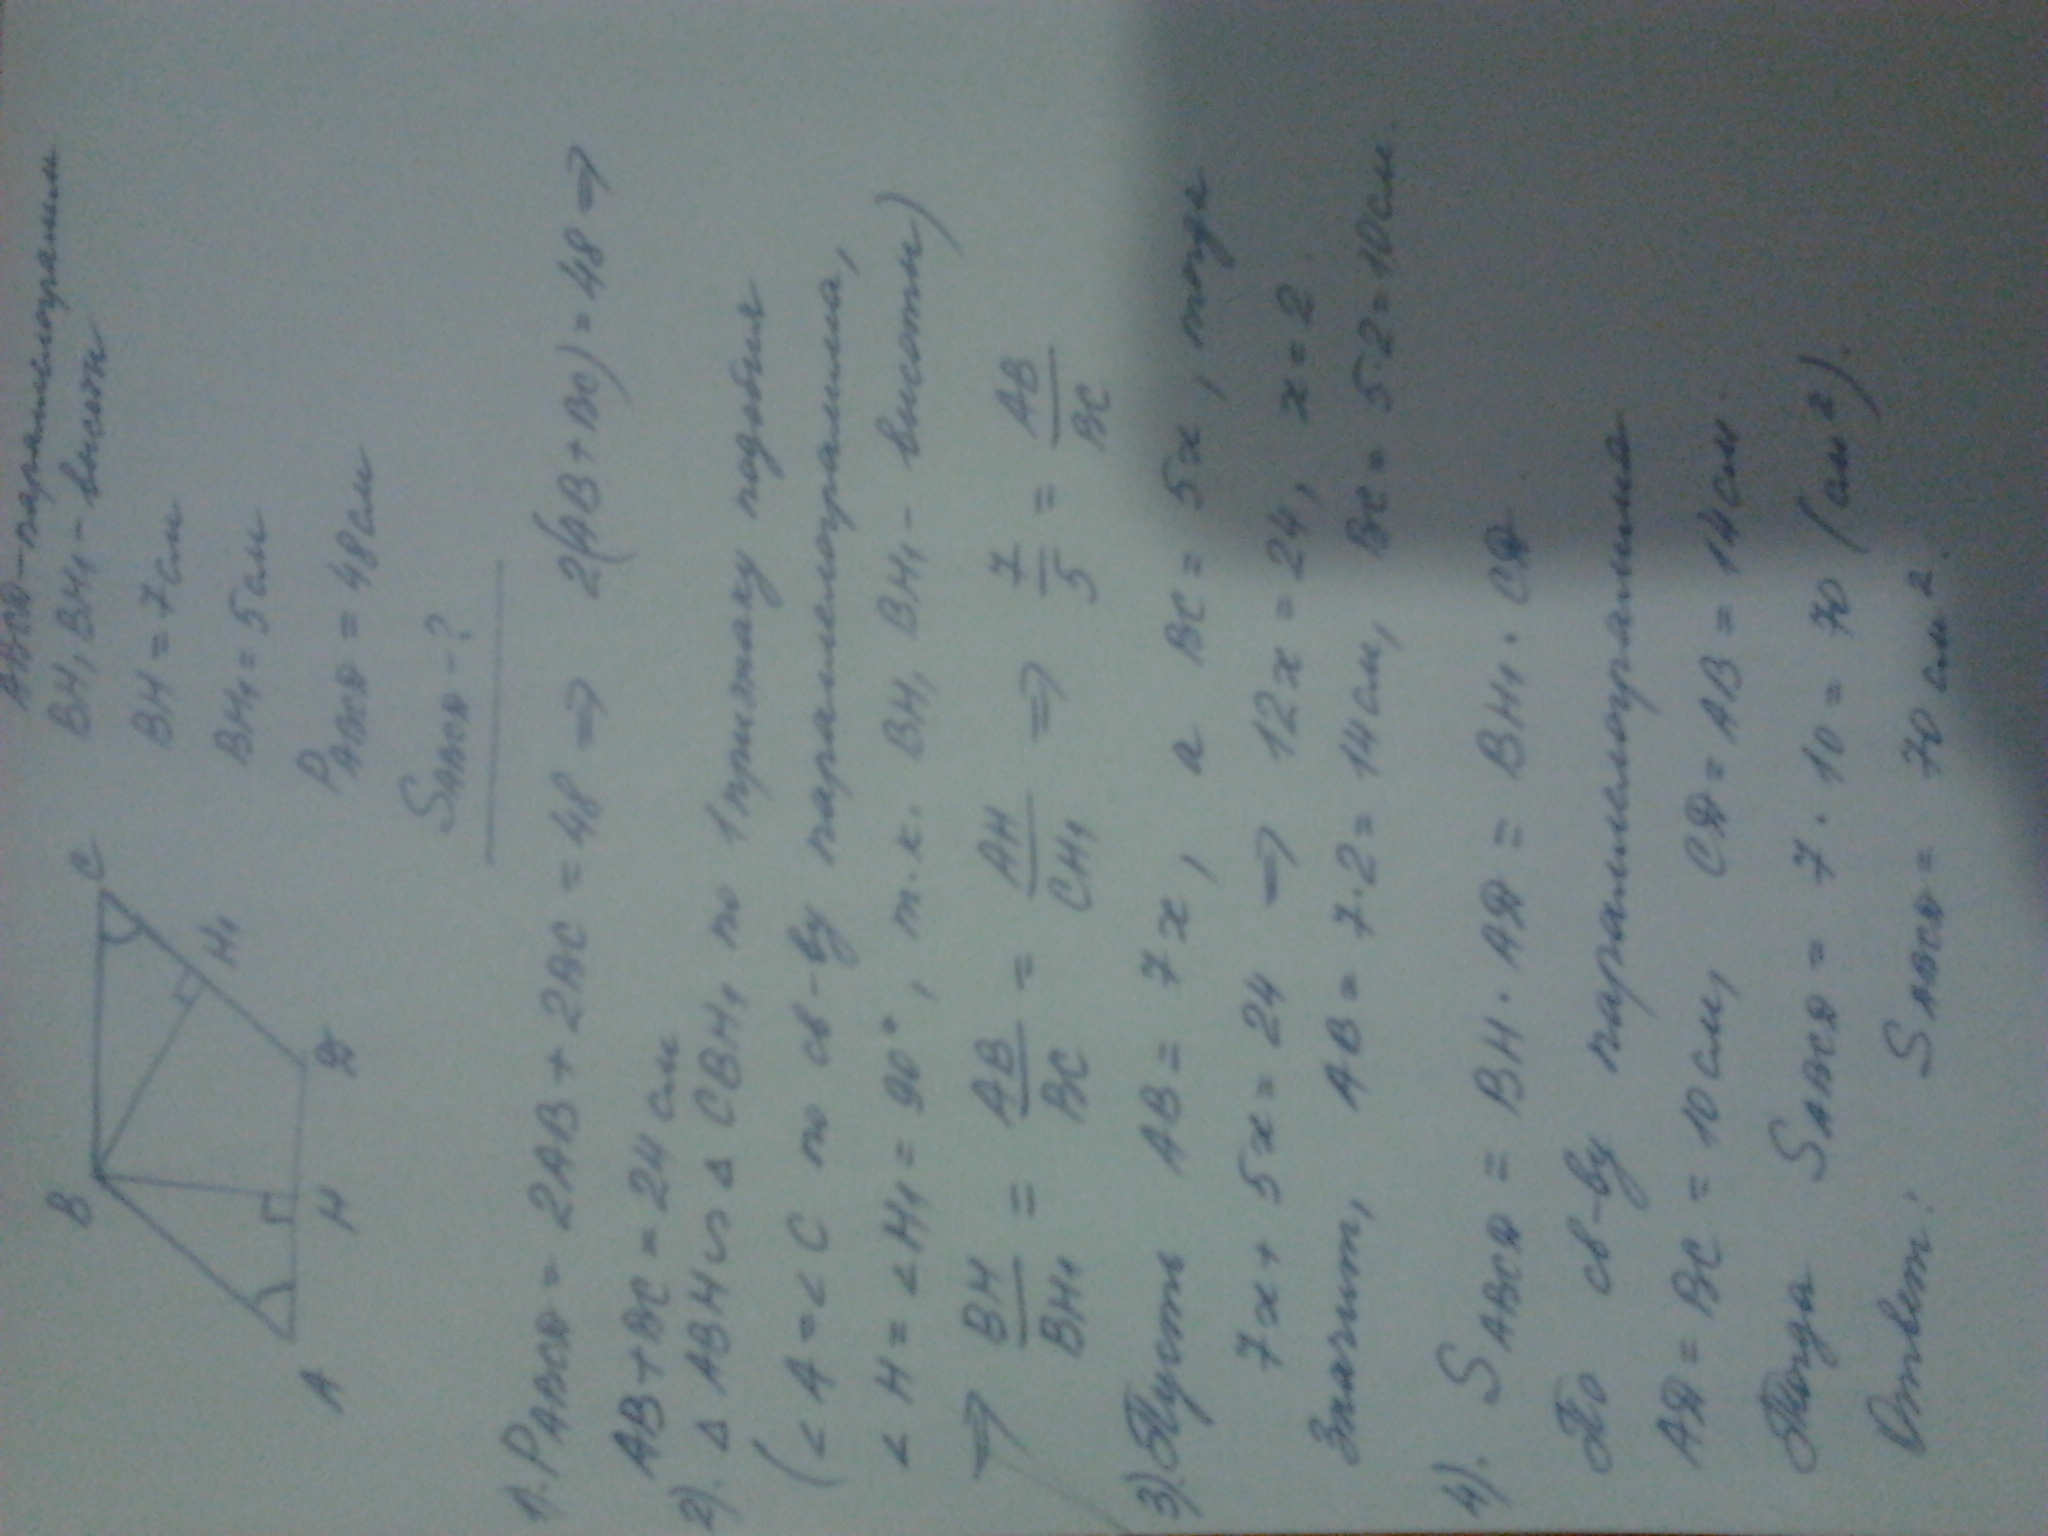 ABCD - параллелограмм
BH, BH₁ - высоты
BH = 7 см
BH₁ = 5 см
P ABCD = 48 см
S ABCD - ?
B
C
H₁
A
H
D
1). P ABCD = 2AB + 2BC = 48 ⇒ 2(AB + BC) = 48 ⇒
AB + BC = 24 см
2). Δ ABH ∽ Δ CBH₁ по 1 признаку подобия
(∠A = ∠C по св-ву параллелограмма,
∠H = ∠H₁ = 90°, т.к. BH, BH₁ - высоты)
⇒ BH/BH₁ = AB/BC = AH/CH₁ ⇒ 7/5 = AB/BC
3). Пусть AB = 7x, а BC = 5x, тогда
7x + 5x = 24 ⇒ 12x = 24, x = 2.
Значит, AB = 7·2 = 14 см, BC = 5·2 = 10 см.
4). S ABCD = BH · AD = BH₁ · CD
По св-ву параллелограмма
AD = BC = 10 см, CD = AB = 14 см.
Тогда S ABCD = 7 · 10 = 70 (см²).
Ответ: S ABCD = 70 см².